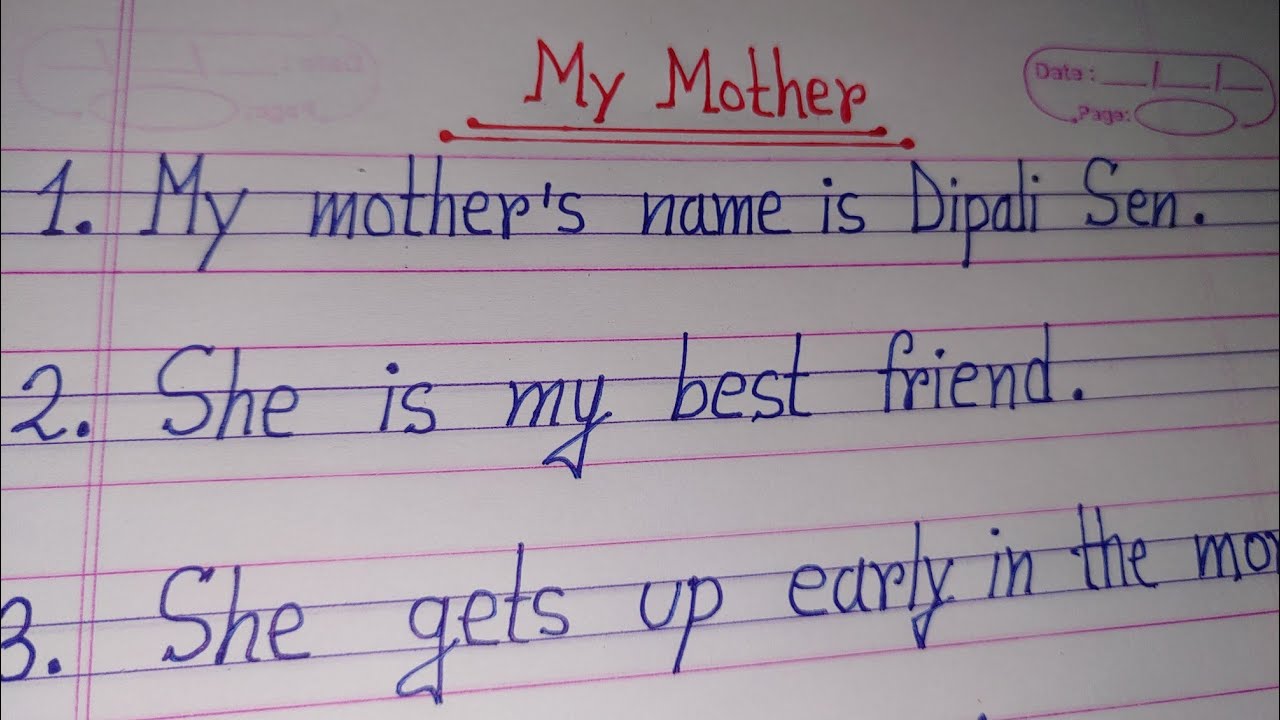 My Mother
Date : __/__/__
Page:
1. My mother's name is Dipali Sen.
2. She is my best friend.
3. She gets up early in the mor